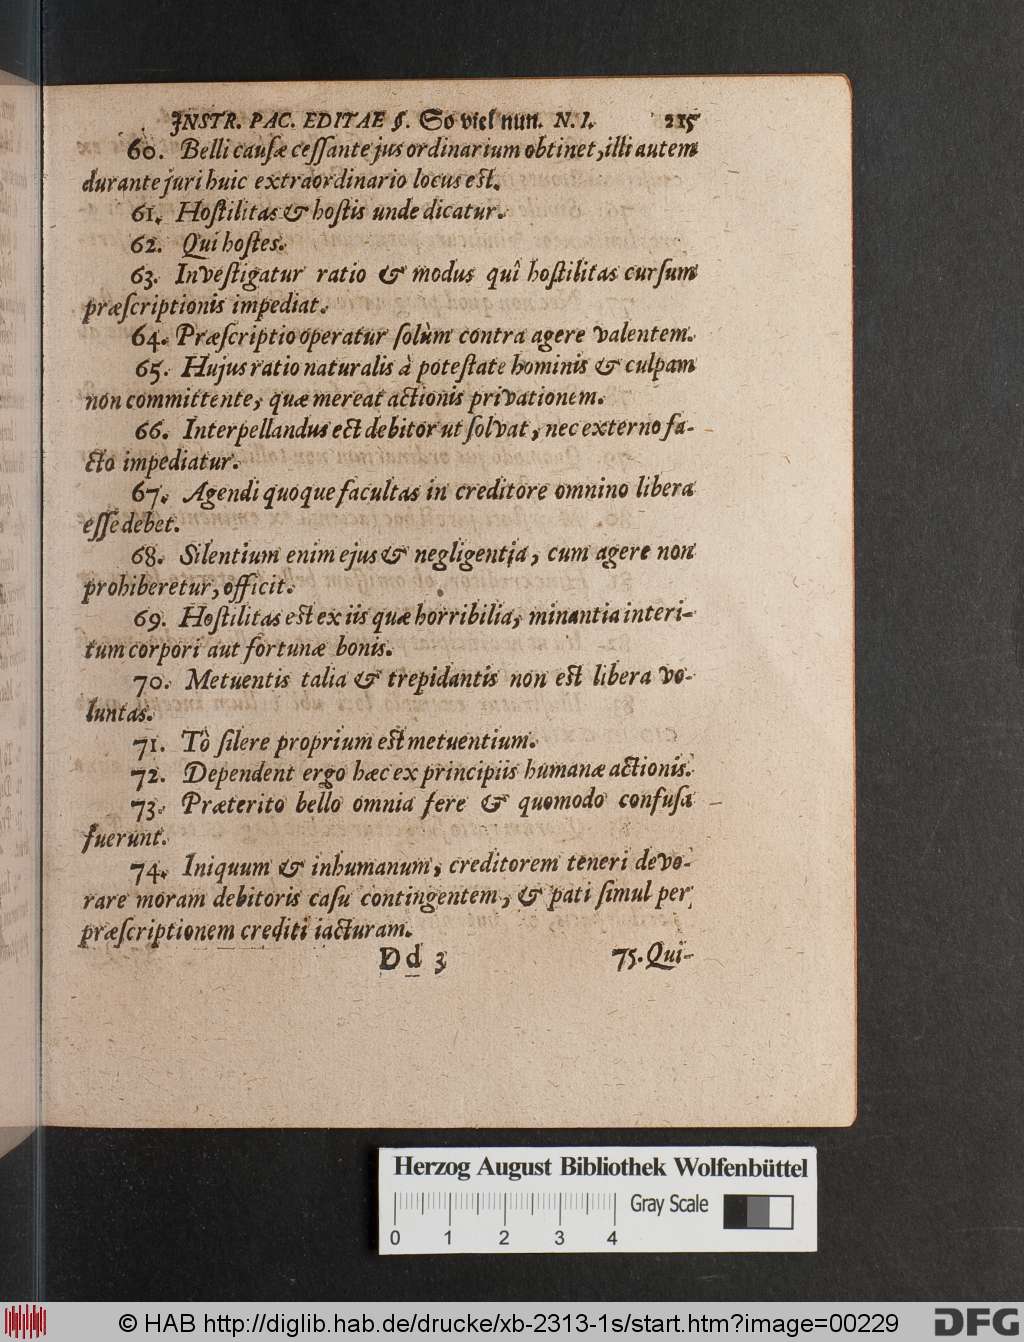 INSTR. PAC. EDITAE §. So viel nun. N. I. 215
60. Belli causæ cessante jus ordinarium obtinet, illi autem
durante juri huic extraordinario locus est.
61. Hostilitas & hostis unde dicatur.
62. Qui hostes.
63. Investigatur ratio & modus quî hostilitas cursum
præscriptionis impediat.
64. Præscriptio operatur solùm contra agere valentem.
65. Hujus ratio naturalis à potestate hominis & culpam
non committente, quæ mereat actionis privationem.
66. Interpellandus est debitor ut solvat, nec externo fa-
cto impediatur.
67. Agendi quoque facultas in creditore omnino libera
esse debet.
68. Silentium enim ejus & negligentia, cum agere non
prohiberetur, officit.
69. Hostilitas est ex iis quæ horribilia, minantia interi-
tum corpori aut fortunæ bonis.
70. Metuentis talia & trepidantis non est libera vo-
luntas.
71. Tò silere proprium est metuentium.
72. Dependent ergo hæc ex principiis humanæ actionis.
73. Præterito bello omnia fere & quomodo confusa
fuerunt.
74. Iniquum & inhumanum, creditorem teneri devo-
rare moram debitoris casu contingentem, & pati simul per
præscriptionem crediti iacturam.
Dd 3 75. Qui-
Herzog August Bibliothek Wolfenbüttel
Gray Scale
0 1 2 3 4
© HAB http://diglib.hab.de/drucke/xb-2313-1s/start.htm?image=00229
DFG